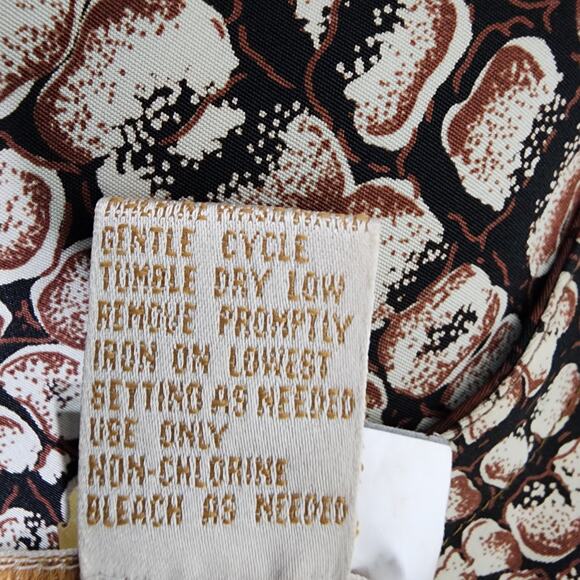 MACHINE WASH WARM
GENTLE CYCLE
TUMBLE DRY LOW
REMOVE PROMPTLY
IRON ON LOWEST
SETTING AS NEEDED
USE ONLY
NON-CHLORINE
BLEACH AS NEEDED